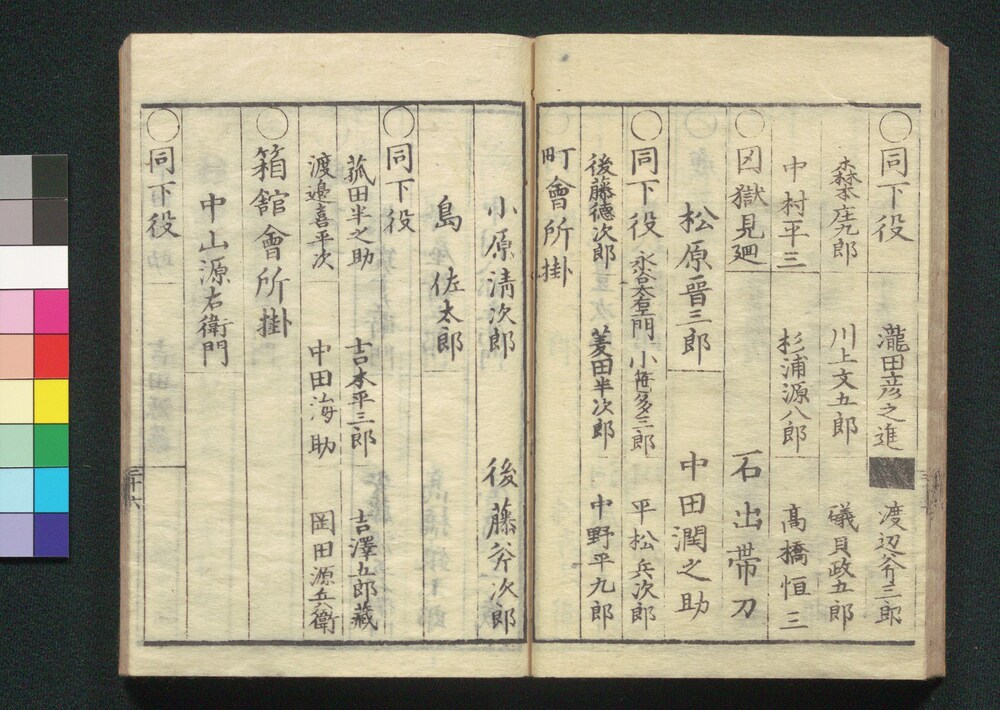 〇同下役
瀧田彦之進 渡辺斧三郎
森本庄九郎 川上文五郎 礒貝政五郎
中村平三 杉浦源八郎 高橋恒三
〇囚獄見廻 石出帯刀
松原晋三郎 中田潤之助
〇同下役 永谷太左衛門 小梅多三郎 平松兵次郎
後藤徳次郎 菱田半次郎 中野平九郎
町會所掛
小原清次郎 後藤斧次郎
島佐太郎
〇同下役
菰田半之助 吉本平三郎 吉澤五郎藏
渡邉喜平次 中田海助 岡田源兵衛
〇箱館會所掛
中山源右衛門
〇同下役
三十六